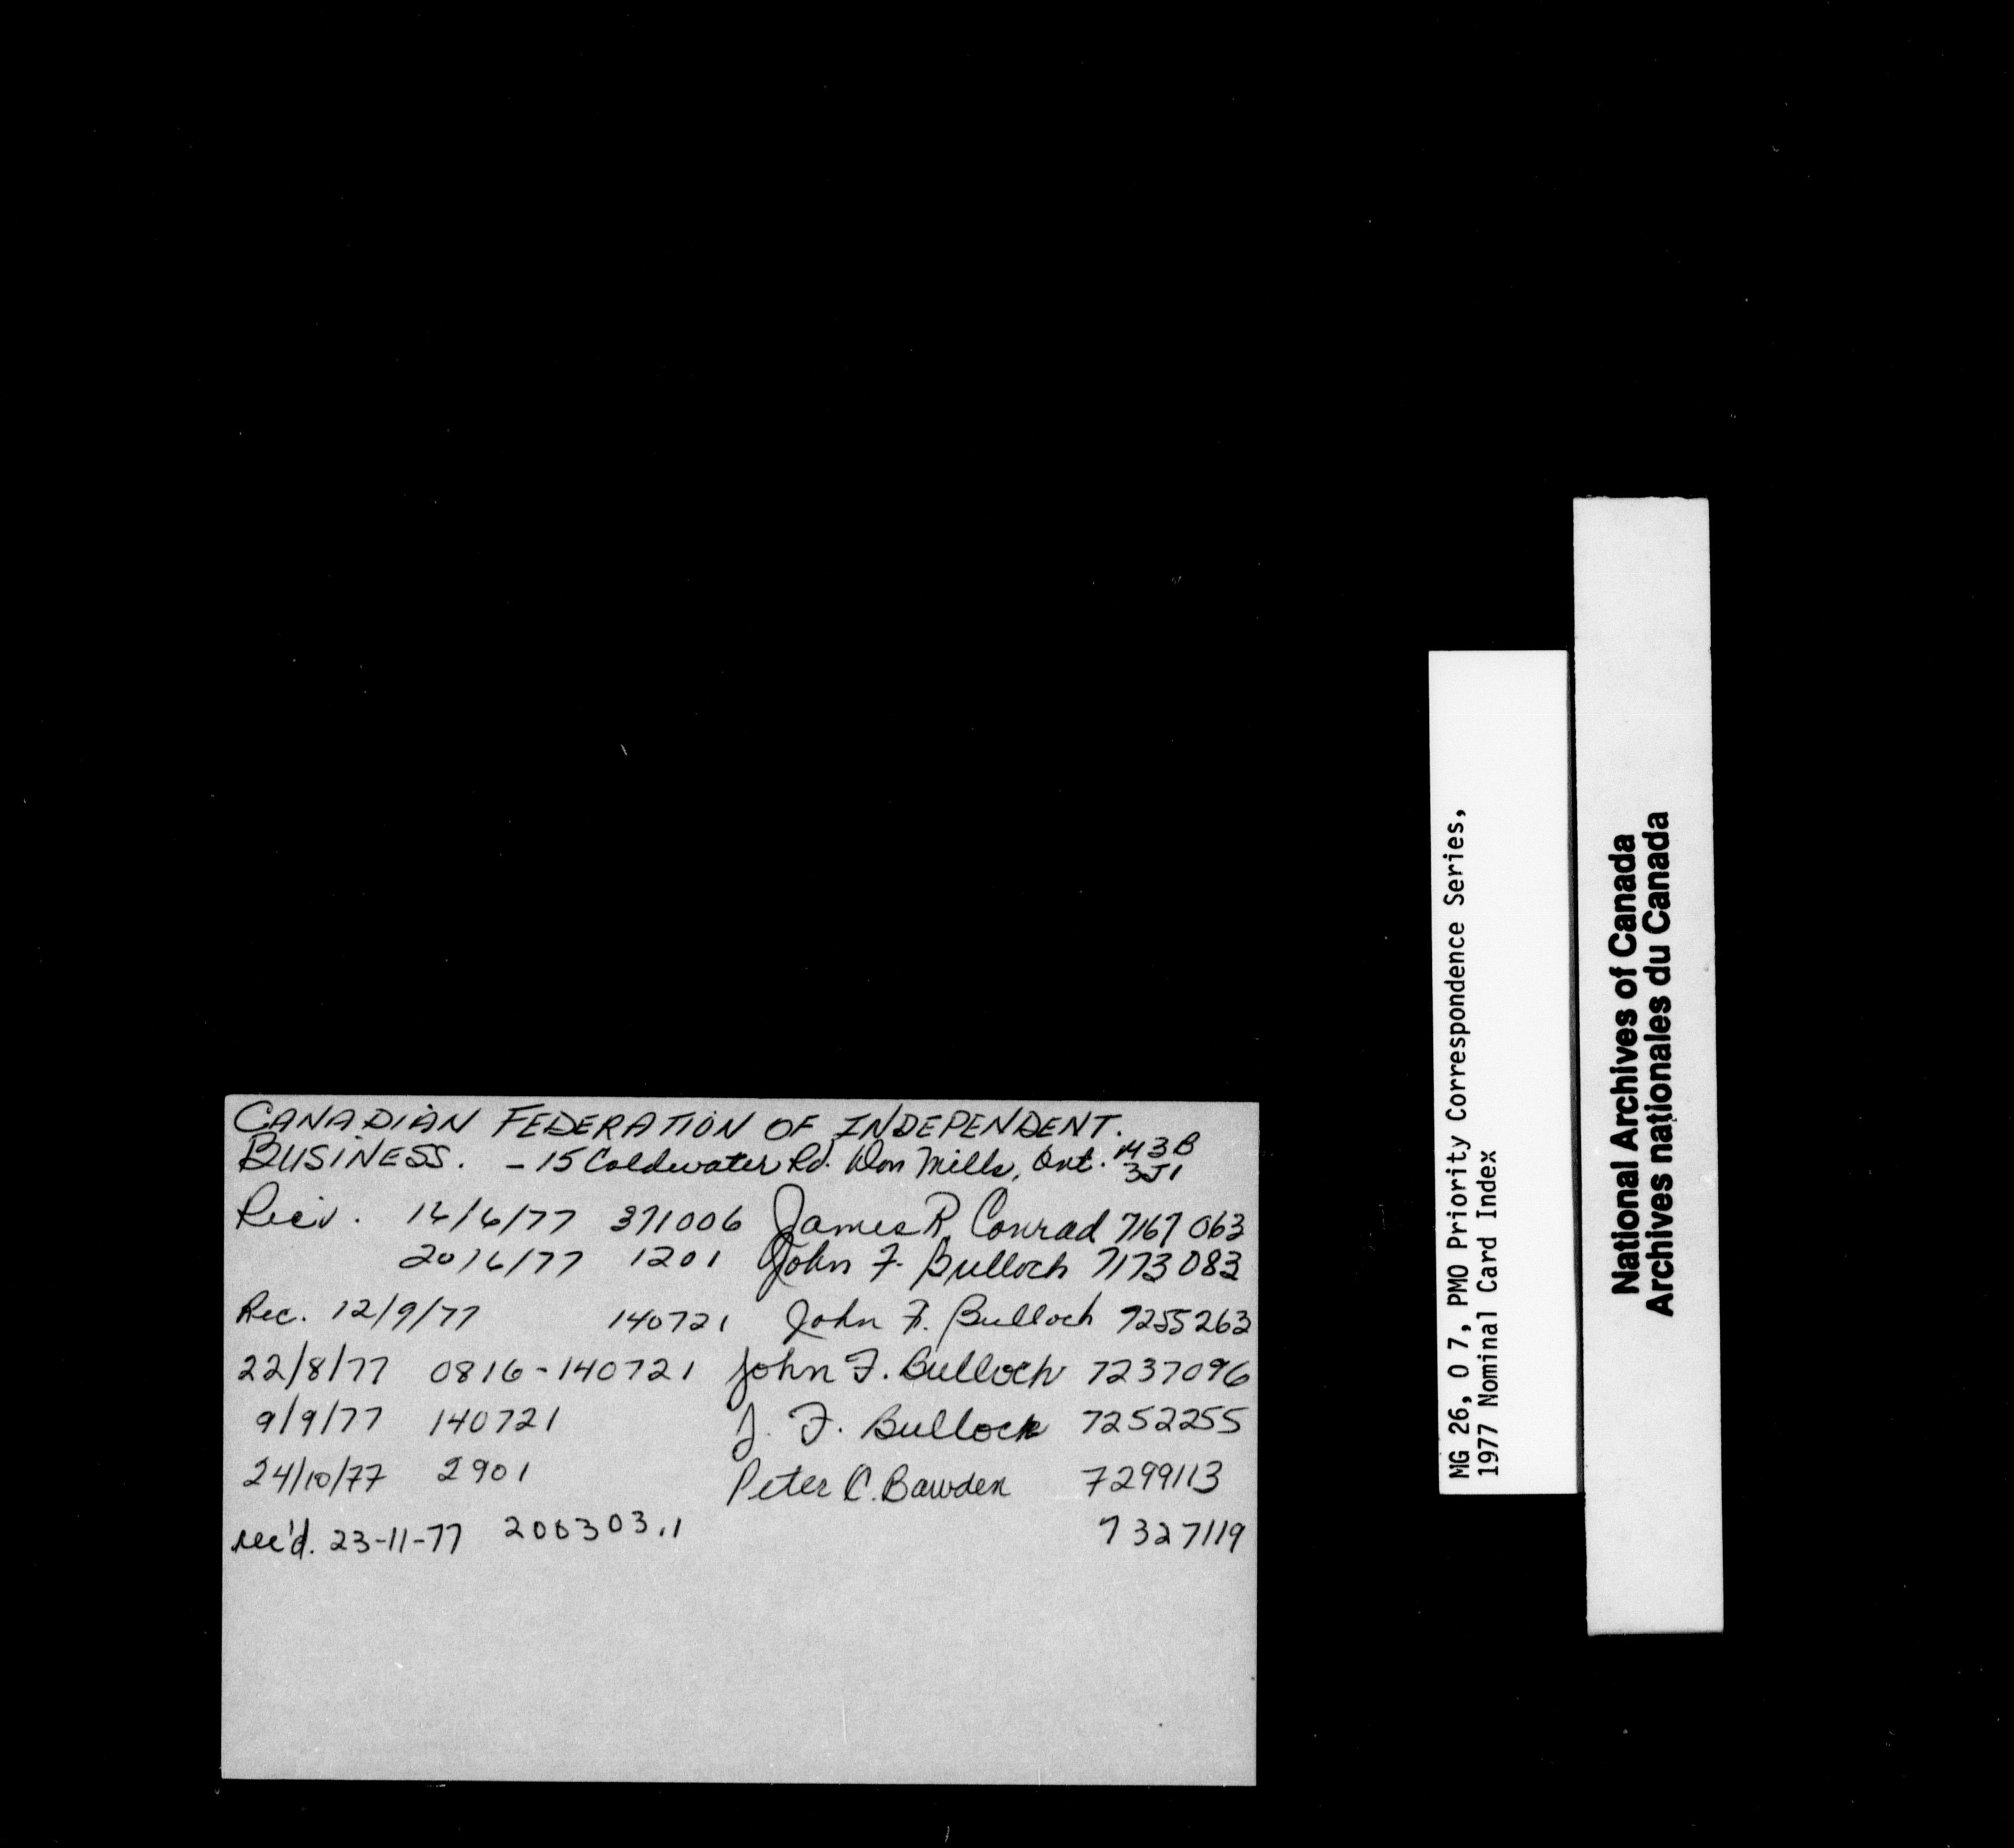 CANADIAN FEDERATION OF INDEPENDENT.
BUSINESS. - 15 Coldwater Rd. Don Mills, Ont. M3B 3J1
Reciv. 14/6/77 371006 James R Conrad 7167 063
20/6/77 1201 John F. Bulloch 7173 083
Rec. 12/9/77 140721 John F. Bulloch 7255263
22/8/77 0816-140721 John F. Bulloch 7237096
9/9/77 140721 J. F. Bullock 7252255
24/10/77 2901 Peter C. Bawden 7299113
rec'd. 23-11-77 200303.1 7327119
MG 26, O 7, PMO Priority Correspondence Series,
1977 Nominal Card Index
National Archives of Canada
Archives nationales du Canada